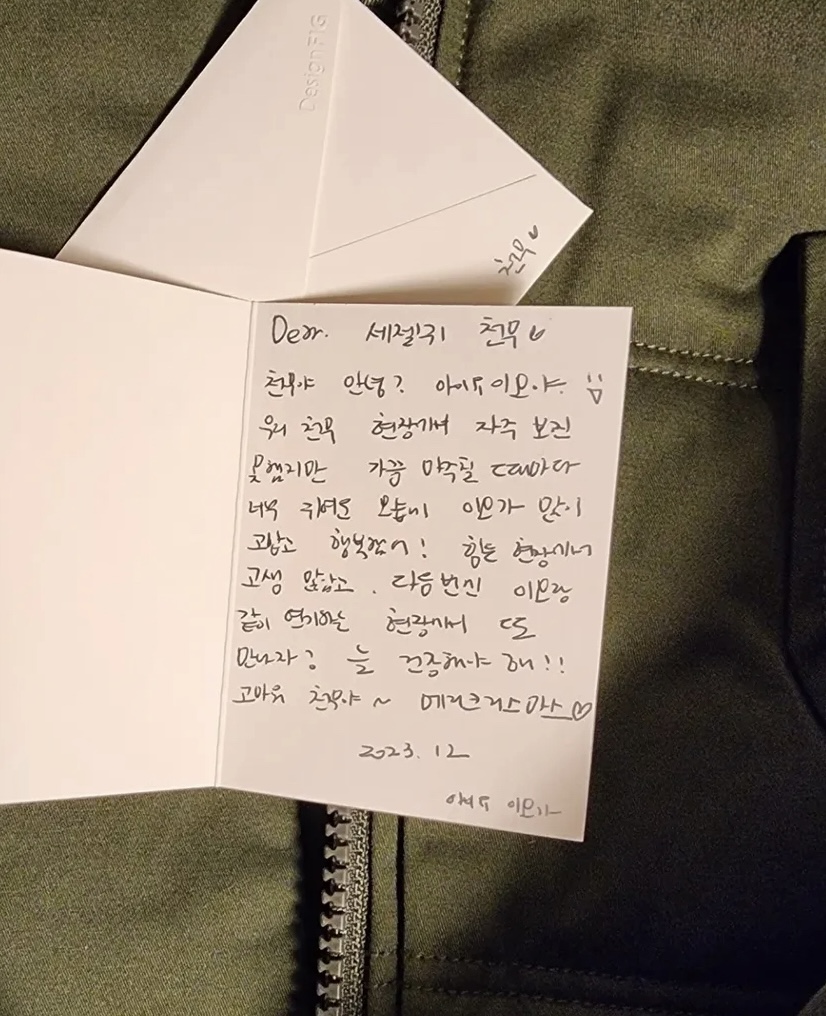 Design FIG
천무♡
Dear. 세젤귀 천무♡
천무야 안녕? 아이유 이모야.
우리 천무 현장에서 자주 보진
못했지만 가끔 마주칠 때마다
너무 귀여운 모습에 이모가 많이
고맙고 행복했어! 힘든 현장에서
고생 많았고. 다음번엔 이모랑
같이 연기하는 현장에서 또
만나자? 늘 건강해야 해!!
고마워 천무야~ 메리크리스마스♡
2023. 12
이모가